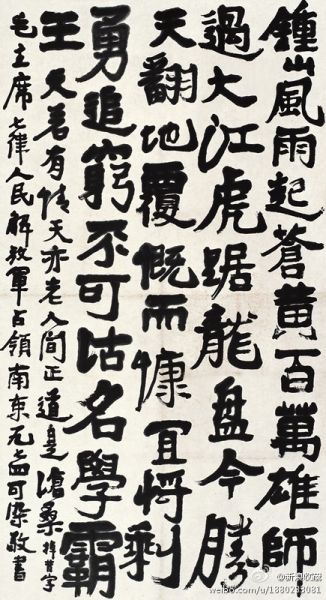 鍾山風雨起蒼黄百萬雄師
過大江虎踞龍盤今勝
天翻地覆慨而慷宜將剩
勇追窮不可沽名學霸
王天若有情天亦老人间正道是滄桑掉字
毛主席七律人民解放軍占領南京可染敬書
@新浪收藏